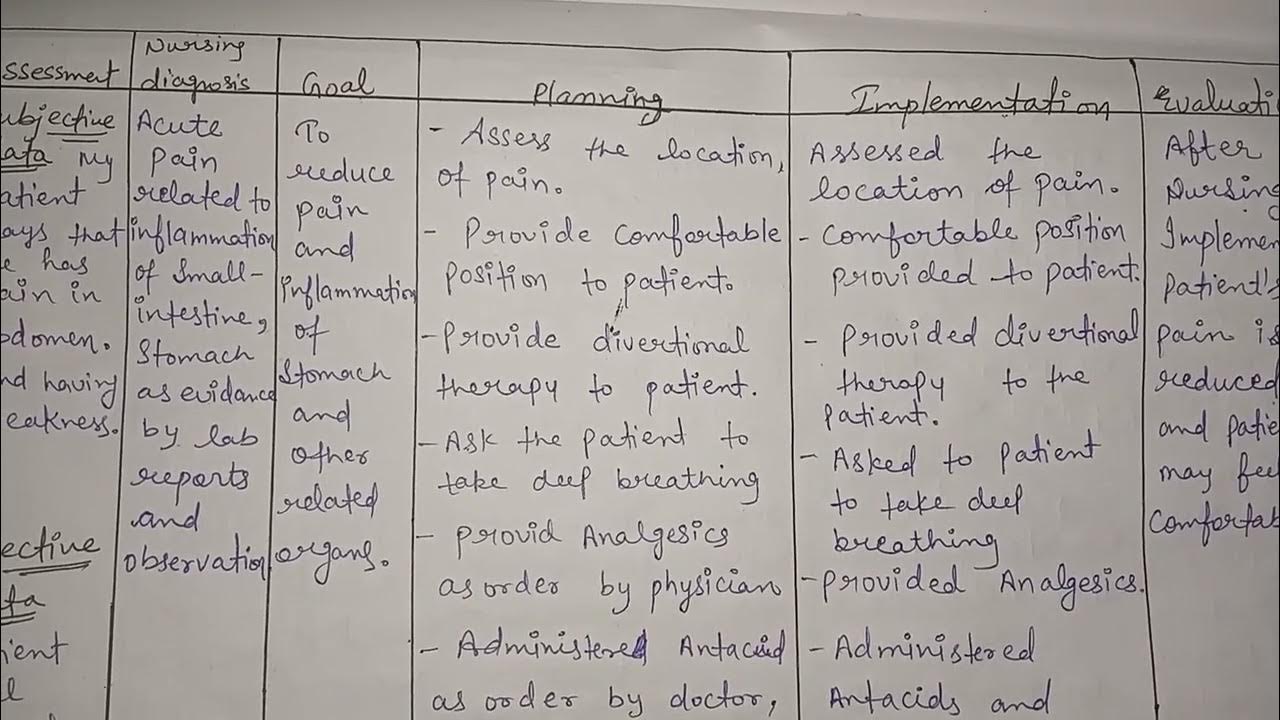 ssessment
ubjective
ata My
atient
ays that
e has
ain in
odomen.
nd having
eakness.
ective
ta
ient
Nursing
diagnosis
Acute
pain
related to
inflammation
of small-
intestine,
Stomach
as evidance
by lab
reports
and
observation
Goal
To
reduce
pain
and
inflammation
of
Stomach
and
other
related
organs.
Planning
- Assess the location,
of pain.
- Provide comfortable
position to patient.
- Provide divertional
therapy to patient.
- Ask the patient to
take deep breathing
- Provid Analgesics
as order by physician
- Administered Antacid
as order by doctor,
Implementation
Assessed the
location of pain.
- comfortable position
provided to patient.
- Provided divertional
therapy to the
patient.
- Asked to patient
to take deep
breathing
- Provided Analgesics.
- Administered
Antacids and
Evaluati
After
Nursing
Implemen
patient's
pain is
reduced
and patie
may fee
comfortab